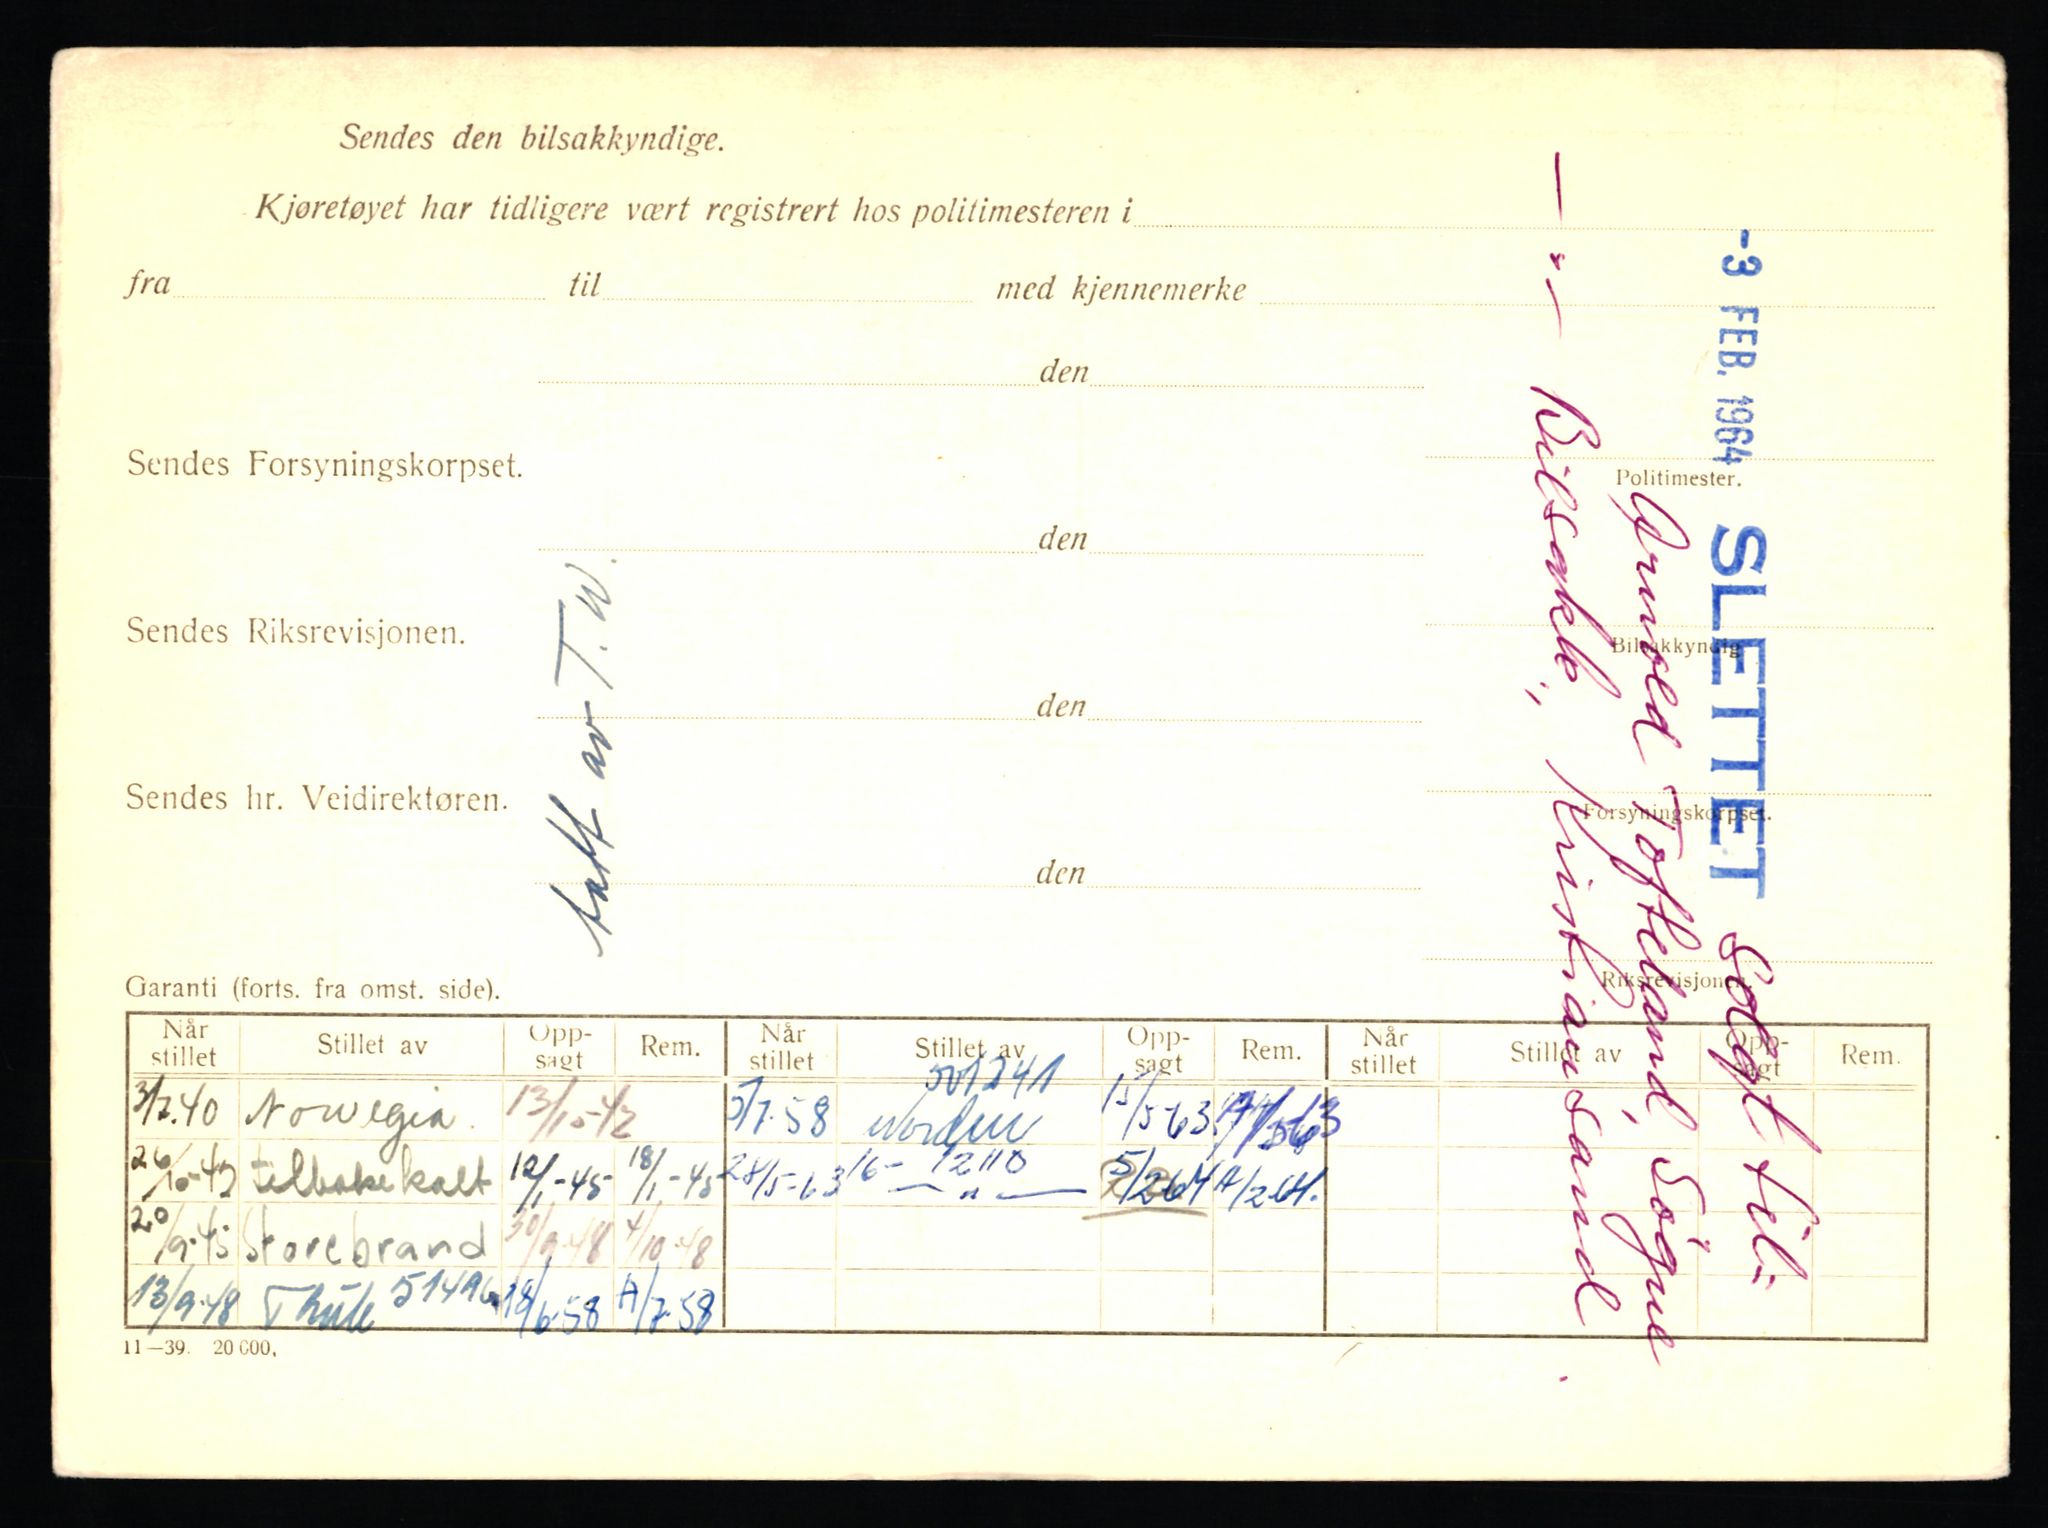 Sendes den bilsakkyndige.
Kjøretøyet har tidligere vært registrert hos politimesteren i
fra til med kjennemerke
den
Sendes Forsyningskorpset.
Politimester.
den
Sendes Riksrevisjonen.
Bilsakkyndig
den
Sendes hr. Veidirektøren.
Forsyningskorpset.
den
Riksrevisjonen.
tatt av T.W.
-3 FEB. 1964 SLETTET
Solgt til:
Arnold Tofteland, Søgne
— " — Bilsakk., Kristiansand.
Garanti (forts. fra omst. side).
Når stillet Stillet av Opp-sagt Rem. Når stillet Stillet av Opp-sagt Rem. Når stillet Stillet av Opp-sagt Rem.
3/7.40 Norwegia. 13/10-42 5/7-58 501241 Norden 15/5-63
26/10-43 tilbakekalt 12/1-45 18/1-45 28/5-63 16- 12110 — " — 5/2-64 A/2-64.
20/9-45 Storebrand 30/9-48 4/10-48
13/9-48 Thule 18/6-58 A/7-58
11—39. 20 000.